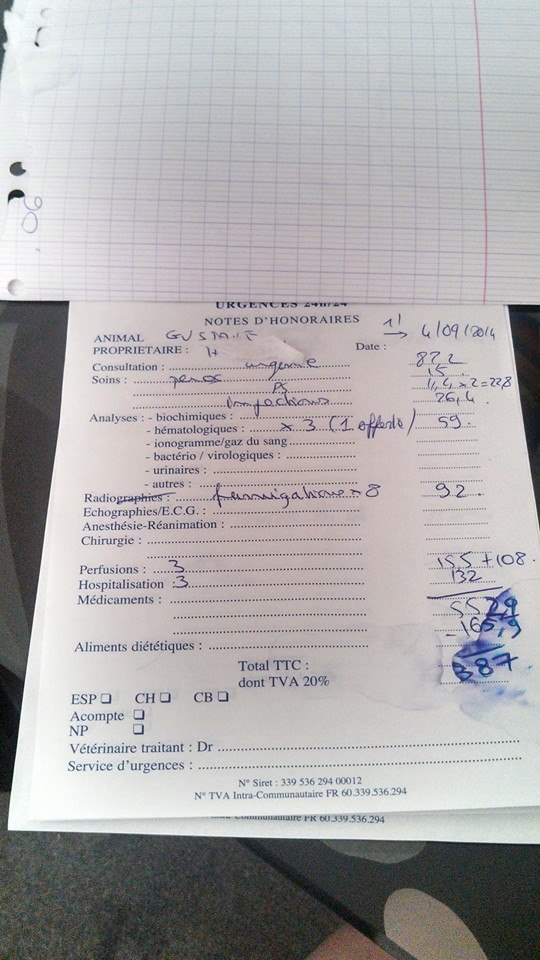 90
URGENCES 24h/24
NOTES D'HONORAIRES
ANIMAL
4/09/2014
PROPRIETAIRE : H
Date :
Consultation : urgence 87,2
Soins : 15
11,4 x 2 = 22,8
Injections 26,4
Analyses : - biochimiques :
- hématologiques : x 3 (1 offerte) 59.
- ionogramme/gaz du sang
- bactério / virologiques :
- urinaires :
- autres :
Radiographies : fumigations x 8 92.
Echographies/E.C.G. :
Anesthésie-Réanimation :
Chirurgie :
Perfusions : 3 15,5 + 108.
Hospitalisation : 3 132
Médicaments : 552,9
- 165,9
Aliments diététiques :
387
Total TTC :
dont TVA 20%
ESP ❑ CH ❑ CB ❑
Acompte ❑
NP ❑
Vétérinaire traitant : Dr
Service d'urgences :
N° Siret : 339 536 294 00012
N° TVA Intra-Communautaire FR 60.339.536.294
Communautaire FR 60.339.536.294